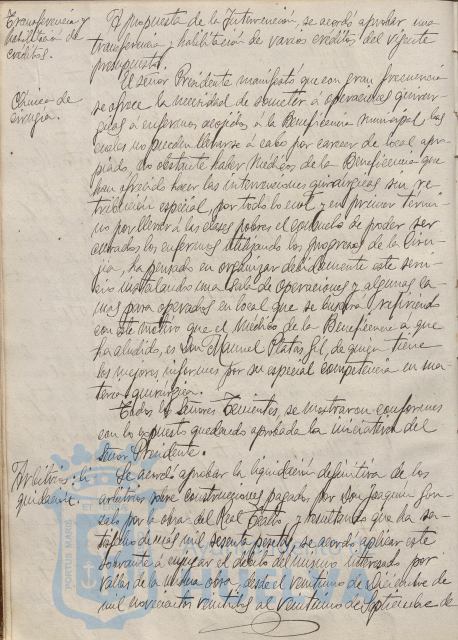 Transferencia y
habilitación de
créditos.
A propuesta de la Intervención, se acordó aprobar una
transferencia y habilitación de varios créditos del vigente
presupuesto.
Clínica de
cirugía.
El señor Presidente manifestó que con gran frecuencia
se ofrece la necesidad de someter á operaciones quirur-
gicas á enfermos acojidos á la Beneficencia municipal, las
cuales no pueden llevarse á cabo por carecer de local apro-
piado, no obstante haber Médicos de la Beneficencia que
han ofrecido hacer las intervenciones quirúrgicas sin re-
tribución especial, por todo lo cual, y en primer térmi-
no por llevar á las clases pobres el consuelo de poder ser
curados los enfermos utilizando los progresos de la Ciru-
jía, ha pensado en organizar debidamente este servi-
cio instalando una Sala de Operaciones y algunas ca-
mas para operados en local que se buscará refiriendo
con este motivo que el Médico de la Beneficencia a que
ha aludido, es Don Manuel Platas Gil, de quien tiene
los mejores informes por su especial competencia en ma-
teria quirúrgica.
Todos los Señores Tenientes, se mostraron conformes
con lo expuesto quedando aprobada la iniciativa del
Señor Presidente.
Arbitrios: li-
quidación.
Se acordó aprobar la liquidación definitiva de los
arbitrios sobre construcciones pagados por Don Joaquín Gon-
zalo por la obra del Real Teatro y resultando que ha sa-
tisfecho de más mil sesenta pesetas, se acordó aplicar este
sobrante á enjugar el débito del mismo interesado por
vallas de la misma obra, desde el veintiuno de Diciembre de
mil novecientos veintidos al veintiuno de Septiembre de
PORTUS MARIS
Ayuntamiento de
HUELVA